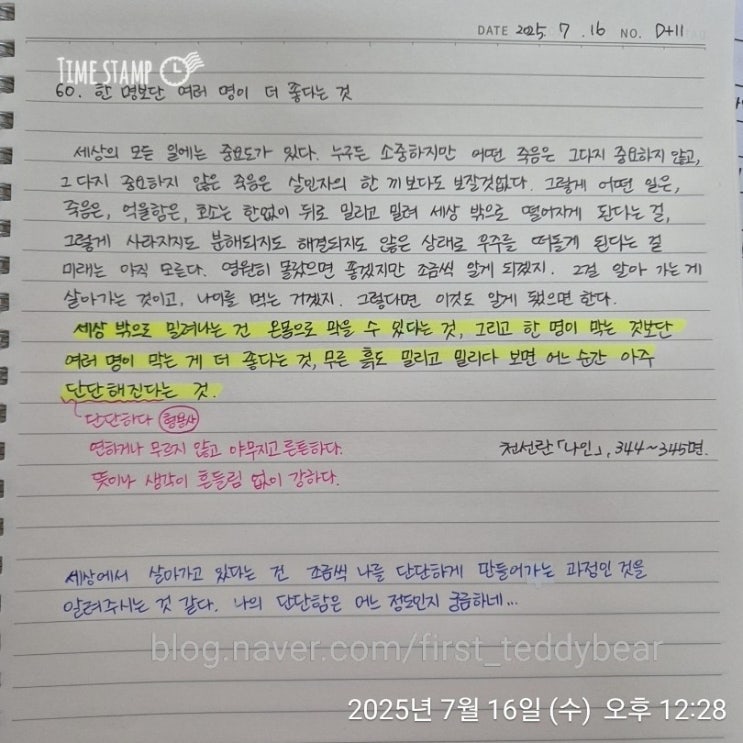 DATE 2025. 7. 16 NO. D+11
TIME STAMP
60. 한 명보단 여러 명이 더 좋다는 것
세상의 모든 일에는 중요도가 있다. 누구든 소중하지만 어떤 죽음은 그다지 중요하지 않고,
그다지 중요하지 않은 죽음은 살인자의 한 끼보다도 보잘것없다. 그렇게 어떤 일은,
죽음은, 억울함은, 호소는 한없이 뒤로 밀리고 밀려 세상 밖으로 떨어지게 된다는 걸,
그렇게 사라지지도 분해되지도 해결되지도 않은 상태로 우주를 떠돌게 된다는 걸
미래는 아직 모른다. 영원히 몰랐으면 좋겠지만 조금씩 알게 되겠지. 그걸 알아 가는 게
살아가는 것이고, 나이를 먹는 거겠지. 그렇다면 이것도 알게 됐으면 한다.
세상 밖으로 밀려나는 건 온몸으로 막을 수 있다는 것, 그리고 한 명이 막는 것보단
여러 명이 막는 게 더 좋다는 것, 무른 흙도 밀리고 밀리다 보면 어느 순간 아주
단단해진다는 것.
단단하다 형용사
연하거나 무르지 않고 야무지고 튼튼하다.
천선란 「나인」, 344~345면.
뜻이나 생각이 흔들림 없이 강하다.
세상에서 살아가고 있다는 건 조금씩 나를 단단하게 만들어가는 과정인 것을
알려주시는 것 같다. 나의 단단함은 어느 정도인지 궁금하네...
blog.naver.com/first_teddybear
2025년 7월 16일 (수) 오후 12:28